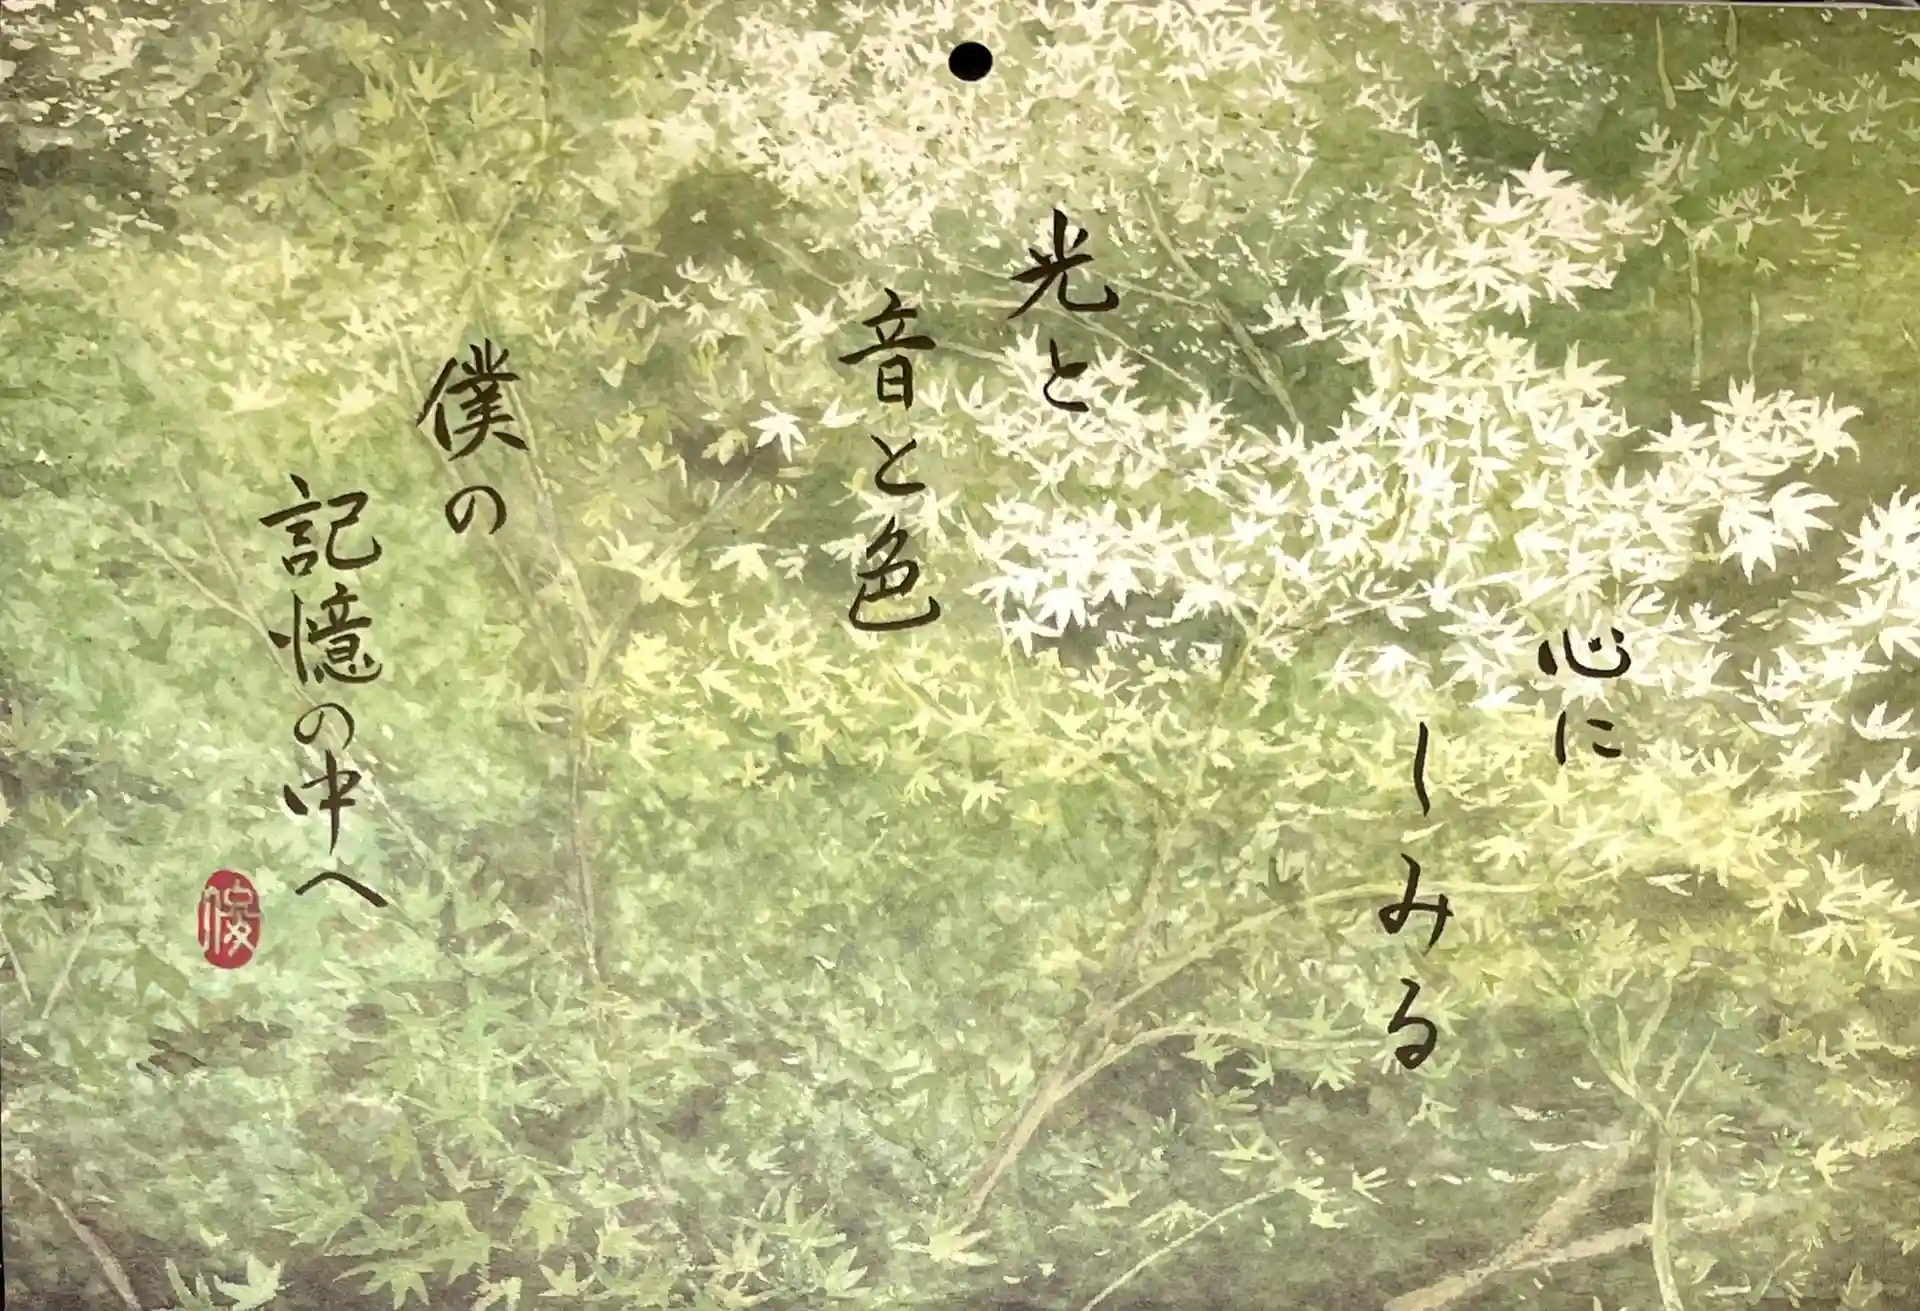 心に
しみる
光と
音と色
僕の
記憶の中へ